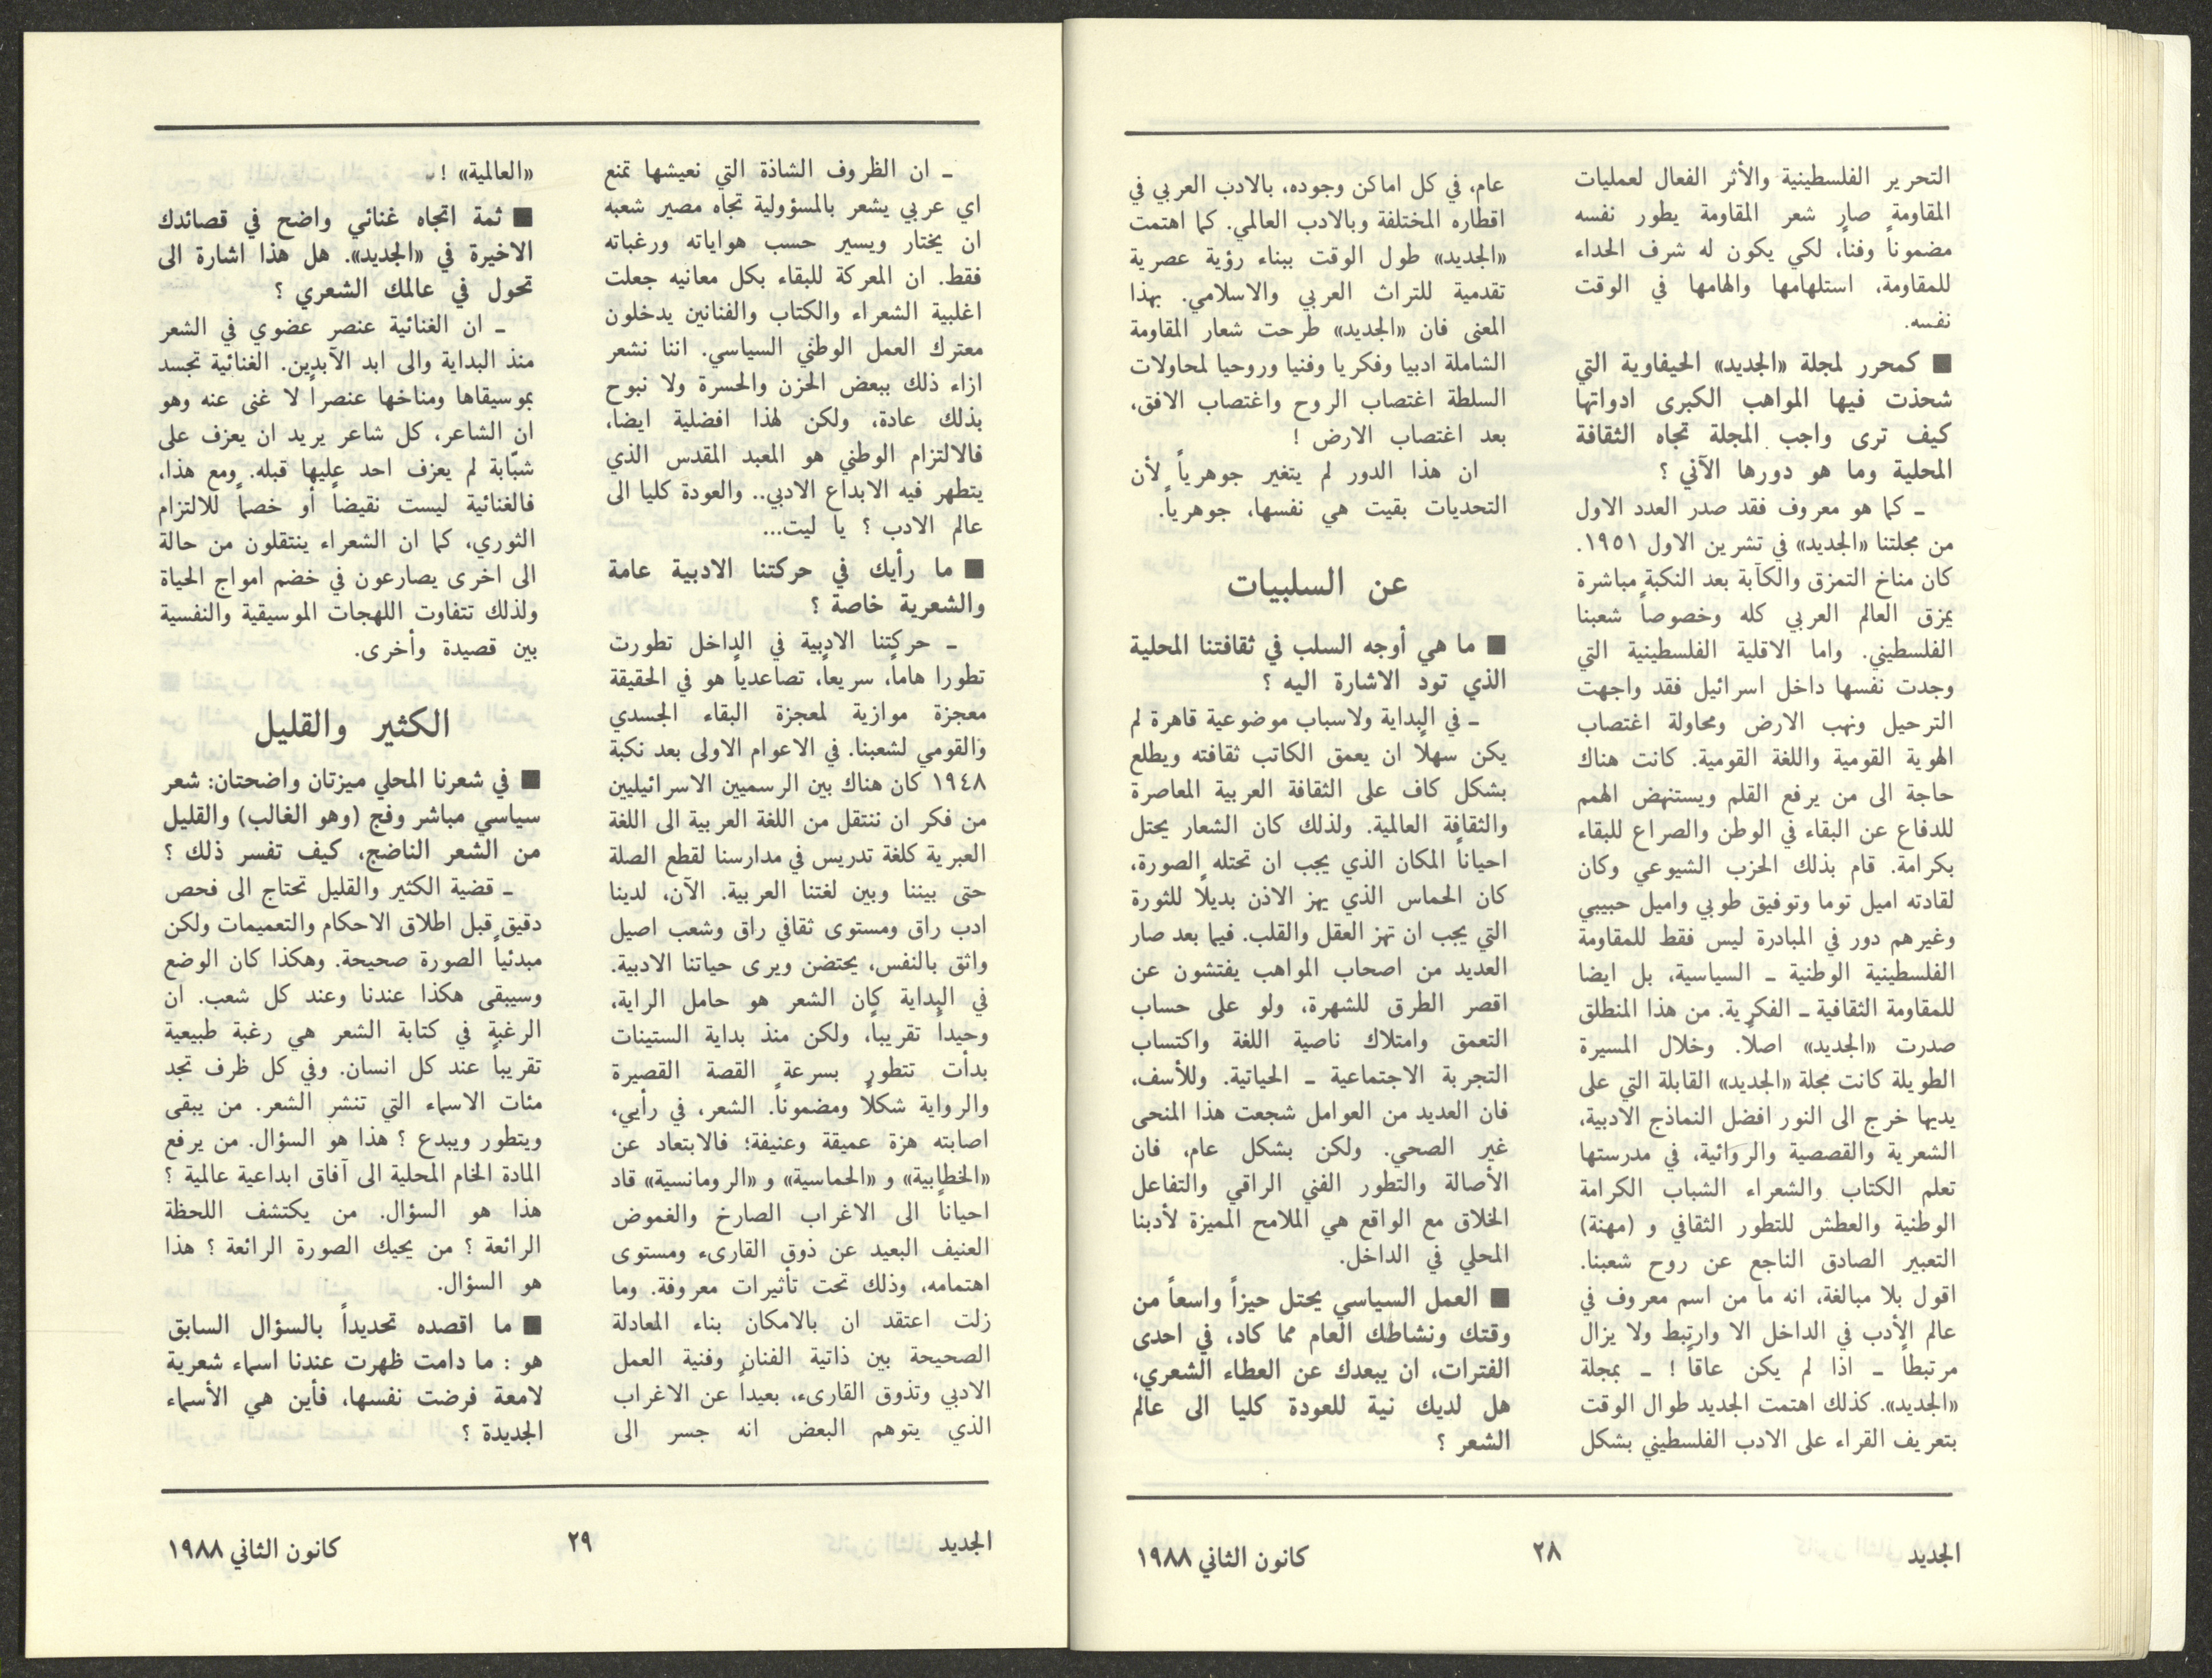 التحرير الفلسطينية والأثر الفعال لعمليات
المقاومة صار شعر المقاومة يطور نفسه
مضموناً وفناً، لكي يكون له شرف الحداء
للمقاومة، استلهامها والهامها في الوقت
نفسه.
■ كمحرر لمجلة «الجديد» الحيفاوية التي
شحذت فيها المواهب الكبرى ادواتها
كيف ترى واجب المجلة تجاه الثقافة
المحلية وما هو دورها الآني ؟
ـ كما هو معروف فقد صدر العدد الاول
من مجلتنا «الجديد» في تشرين الاول ١٩٥١.
كان مناخ التمزق والكآبة بعد النكبة مباشرة
يمزق العالم العربي كله وخصوصاً شعبنا
الفلسطيني. واما الاقلية الفلسطينية التي
وجدت نفسها داخل اسرائيل فقد واجهت
الترحيل ونهب الارض ومحاولة اغتصاب
الهوية القومية واللغة القومية. كانت هناك
حاجة الى من يرفع القلم ويستنهض الهمم
للدفاع عن البقاء في الوطن والصراع للبقاء
بكرامة. قام بذلك الحزب الشيوعي وكان
لقادته اميل توما وتوفيق طوبي واميل حبيبي
وغيرهم دور في المبادرة ليس فقط للمقاومة
الفلسطينية الوطنية ـ السياسية، بل ايضا
للمقاومة الثقافية ـ الفكرية. من هذا المنطلق
صدرت «الجديد» اصلاً. وخلال المسيرة
الطويلة كانت مجلة «الجديد» القابلة التي على
يديها خرج الى النور افضل النماذج الادبية،
الشعرية والقصصية والروائية، في مدرستها
تعلم الكتاب والشعراء الشباب الكرامة
الوطنية والعطش للتطور الثقافي و (مهنة)
التعبير الصادق الناجع عن روح شعبنا.
اقول بلا مبالغة، انه ما من اسم معروف في
عالم الأدب في الداخل الا وارتبط ولا يزال
مرتبطاً ـ اذا لم يكن عاقاً ! ـ بمجلة
«الجديد». كذلك اهتمت الجديد طوال الوقت
بتعريف القراء على الادب الفلسطيني بشكل
عام، في كل اماكن وجوده، بالادب العربي في
اقطاره المختلفة وبالادب العالمي. كما اهتمت
«الجديد» طول الوقت ببناء رؤية عصرية
تقدمية للتراث العربي والاسلامي. بهذا
المعنى فان «الجديد» طرحت شعار المقاومة
الشاملة ادبيا وفكريا وفنيا وروحيا لمحاولات
السلطة اغتصاب الروح واغتصاب الافق،
بعد اغتصاب الارض !
ان هذا الدور لم يتغير جوهرياً لأن
التحديات بقيت هي نفسها، جوهرياً.
عن السلبيات
■ ما هي أوجه السلب في ثقافتنا المحلية
الذي تود الاشارة اليه ؟
ـ في البداية ولاسباب موضوعية قاهرة لم
يكن سهلاً ان يعمق الكاتب ثقافته ويطلع
بشكل كاف على الثقافة العربية المعاصرة
والثقافة العالمية. ولذلك كان الشعار يحتل
احياناً المكان الذي يجب ان تحتله الصورة،
كان الحماس الذي يهز الاذن بديلاً للثورة
التي يجب ان تهز العقل والقلب. فيما بعد صار
العديد من اصحاب المواهب يفتشون عن
اقصر الطرق للشهرة، ولو على حساب
التعمق وامتلاك ناصية اللغة واكتساب
التجربة الاجتماعية ـ الحياتية. وللأسف،
فان العديد من العوامل شجعت هذا المنحى
غير الصحي. ولكن بشكل عام، فان
الأصالة والتطور الفني الراقي والتفاعل
الخلاق مع الواقع هي الملامح المميزة لأدبنا
المحلي في الداخل.
■ العمل السياسي يحتل حيزاً واسعاً من
وقتك ونشاطك العام مما كاد، في احدى
الفترات، ان يبعدك عن العطاء الشعري،
هل لديك نية للعودة كليا الى عالم
الشعر ؟
الجديد
٢٨
كانون الثاني ١٩٨٨
ـ ان الظروف الشاذة التي نعيشها تمنع
اي عربي يشعر بالمسؤولية تجاه مصير شعبه
ان يختار ويسير حسب هواياته ورغباته
فقط. ان المعركة للبقاء بكل معانيه جعلت
اغلبية الشعراء والكتاب والفنانين يدخلون
معترك العمل الوطني السياسي. اننا نشعر
ازاء ذلك ببعض الحزن والحسرة ولا نبوح
بذلك عادة، ولكن لهذا افضلية ايضا،
فالالتزام الوطني هو المعبد المقدس الذي
يتطهر فيه الابداع الادبي.. والعودة كليا الى
عالم الادب ؟ يا ليت...
■ ما رأيك في حركتنا الادبية عامة
والشعرية خاصة ؟
ـ حركتنا الادبية في الداخل تطورت
تطورا هاماً، سريعاً، تصاعدياً هو في الحقيقة
معجزة موازية لمعجزة البقاء الجسدي
والقومي لشعبنا. في الاعوام الاولى بعد نكبة
١٩٤٨ كان هناك بين الرسميين الاسرائيليين
من فكر ان ننتقل من اللغة العربية الى اللغة
العبرية كلغة تدريس في مدارسنا لقطع الصلة
حتى بيننا وبين لغتنا العربية. الآن، لدينا
ادب راق ومستوى ثقافي راق وشعب اصيل
واثق بالنفس، يحتضن ويرى حياتنا الادبية.
في البداية كان الشعر هو حامل الراية،
وحيداً تقريباً، ولكن منذ بداية الستينات
بدأت تتطور بسرعة القصة القصيرة
والرواية شكلاً ومضموناً. الشعر، في رأيي،
اصابته هزة عميقة وعنيفة؛ فالابتعاد عن
«الخطابية» و «الحماسية» و «الرومانسية» قاد
احياناً الى الاغراب الصارخ والغموض
العنيف البعيد عن ذوق القارىء ومستوى
اهتمامه، وذلك تحت تأثيرات معروفة. وما
زلت اعتقد ان بالامكان بناء المعادلة
الصحيحة بين ذاتية الفنان وفنية العمل
الادبي وتذوق القارىء، بعيداً عن الاغراب
الذي يتوهم البعض انه جسر الى
«العالمية» !.
■ ثمة اتجاه غنائي واضح في قصائدك
الاخيرة في «الجديد». هل هذا اشارة الى
تحول في عالمك الشعري ؟
ـ ان الغنائية عنصر عضوي في الشعر
منذ البداية والى ابد الآبدين. الغنائية تجسد
بموسيقاها ومناخها عنصراً لا غنى عنه وهو
ان الشاعر، كل شاعر يريد ان يعزف على
شبّابة لم يعزف احد عليها قبله. ومع هذا،
فالغنائية ليست نقيضاً أو خصماً للالتزام
الثوري، كما ان الشعراء ينتقلون من حالة
الى اخرى يصارعون في خضم امواج الحياة
ولذلك تتفاوت اللهجات الموسيقية والنفسية
بين قصيدة وأخرى.
الكثير والقليل
■ في شعرنا المحلي ميزتان واضحتان: شعر
سياسي مباشر وفج (وهو الغالب) والقليل
من الشعر الناضج، كيف تفسر ذلك ؟
ـ قضية الكثير والقليل تحتاج الى فحص
دقيق قبل اطلاق الاحكام والتعميمات ولكن
مبدئياً الصورة صحيحة. وهكذا كان الوضع
وسيبقى هكذا عندنا وعند كل شعب. ان
الرغبة في كتابة الشعر هي رغبة طبيعية
تقريباً عند كل انسان. وفي كل ظرف تجد
مئات الاسماء التي تنشر الشعر. من يبقى
ويتطور ويبدع ؟ هذا هو السؤال. من يرفع
المادة الخام المحلية الى آفاق ابداعية عالمية ؟
هذا هو السؤال. من يكتشف اللحظة
الرائعة ؟ من يحيك الصورة الرائعة ؟ هذا
هو السؤال.
■ ما اقصده تحديداً بالسؤال السابق
هو : ما دامت ظهرت عندنا اسماء شعرية
لامعة فرضت نفسها، فأين هي الأسماء
الجديدة ؟
الجديد
٢٩
كانون الثاني ١٩٨٨